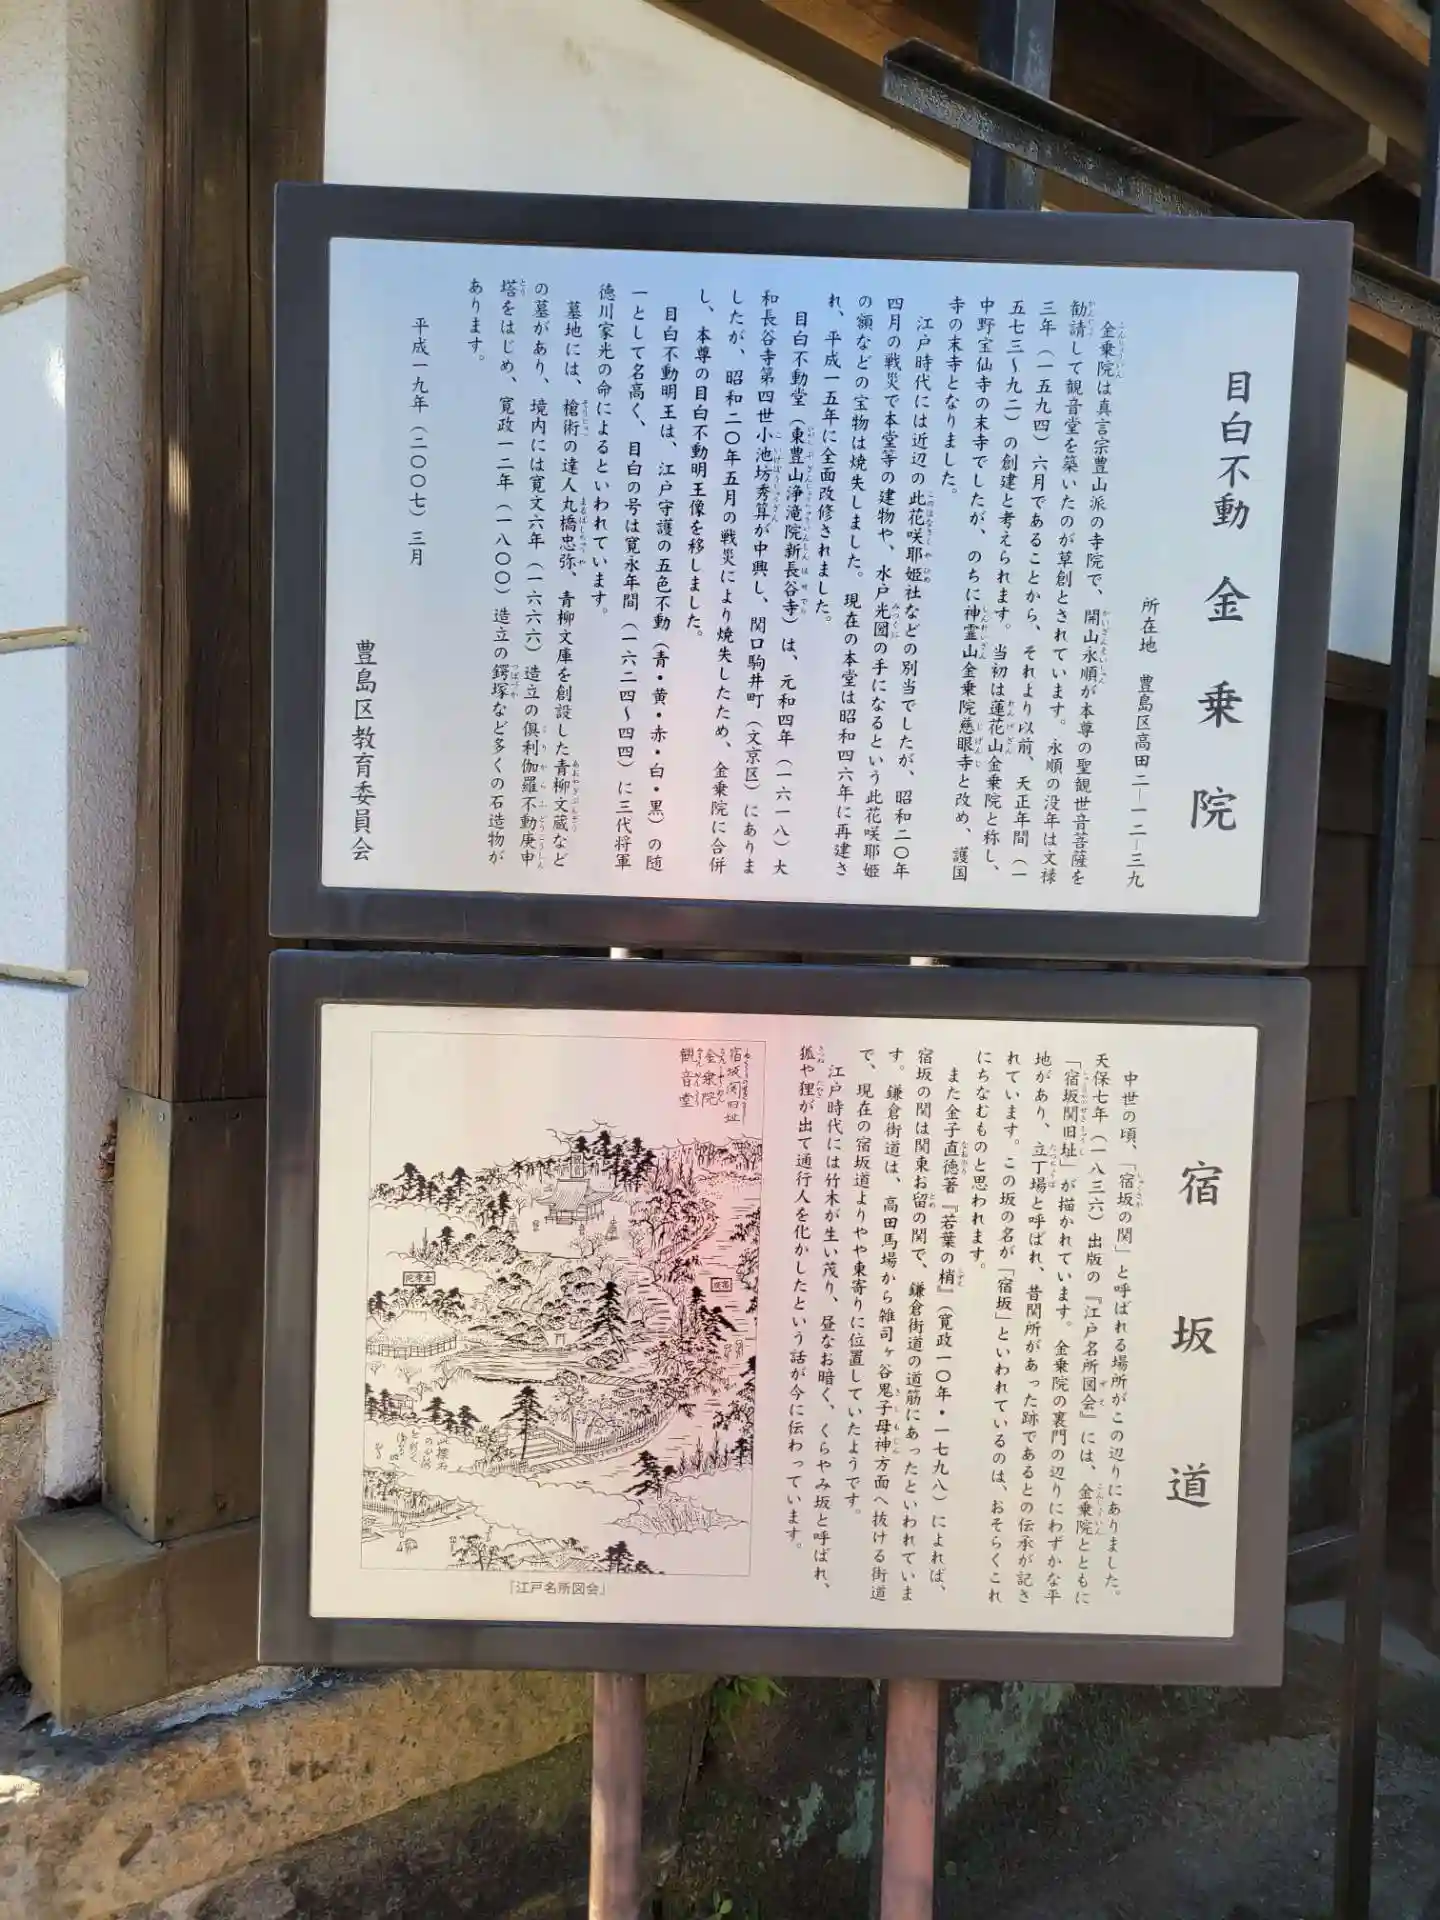 目白不動 金乗院
所在地 豊島区高田二―一二―三九
金乗院は真言宗豊山派の寺院で、開山永順が本尊の聖観世音菩薩を
勧請して観音堂を築いたのが草創とされています。永順の没年は文禄
三年（一五九四）六月であることから、それより以前、天正年間（一
五七三～九二）の創建と考えられます。当初は蓮花山金乗院と称し、
中野宝仙寺の末寺でしたが、のちに神霊山金乗院慈眼寺と改め、護国
寺の末寺となりました。
江戸時代には近辺の此花咲耶姫社などの別当でしたが、昭和二〇年
四月の戦災で本堂等の建物や、水戸光圀の手になるという此花咲耶姫
の額などの宝物は焼失しました。現在の本堂は昭和四六年に再建さ
れ、平成一五年に全面改修されました。
目白不動堂（東豊山浄滝院新長谷寺）は、元和四年（一六一八）大
和長谷寺第四世小池坊秀算が中興し、関口駒井町（文京区）にありま
したが、昭和二〇年五月の戦災により焼失したため、金乗院に合併
し、本尊の目白不動明王像を移しました。
目白不動明王は、江戸守護の五色不動（青・黄・赤・白・黒）の随
一として名高く、目白の号は寛永年間（一六二四～四四）に三代将軍
徳川家光の命によるといわれています。
墓地には、槍術の達人丸橋忠弥、青柳文庫を創設した青柳文蔵など
の墓があり、境内には寛文六年（一六六六）造立の倶利伽羅不動庚申
塔をはじめ、寛政一二年（一八〇〇）造立の鍔塚など多くの石造物が
あります。
平成一九年（二〇〇七）三月
豊島区教育委員会
宿坂道
中世の頃、「宿坂の関」と呼ばれる場所がこの辺りにありました。
天保七年（一八三六）出版の『江戸名所図会』には、金乗院とともに
「宿坂関旧址」が描かれています。金乗院の裏門の辺りにわずかな平
地があり、立丁場と呼ばれ、昔関所があった跡であるとの伝承が記さ
れています。この坂の名が「宿坂」といわれているのは、おそらくこれ
にちなむものと思われます。
また金子直徳著『若葉の梢』（寛政一〇年・一七九八）によれば、
宿坂の関は関東お留の関で、鎌倉街道の道筋にあったといわれていま
す。鎌倉街道は、高田馬場から雑司ヶ谷鬼子母神方面へ抜ける街道
で、現在の宿坂道よりやや東寄りに位置していたようです。
江戸時代には竹木が生い茂り、昼なお暗く、くらやみ坂と呼ばれ、
狐や狸が出て通行人を化かしたという話が今に伝わっています。
宿坂関旧址
金乗院
観音堂
『江戸名所図会』